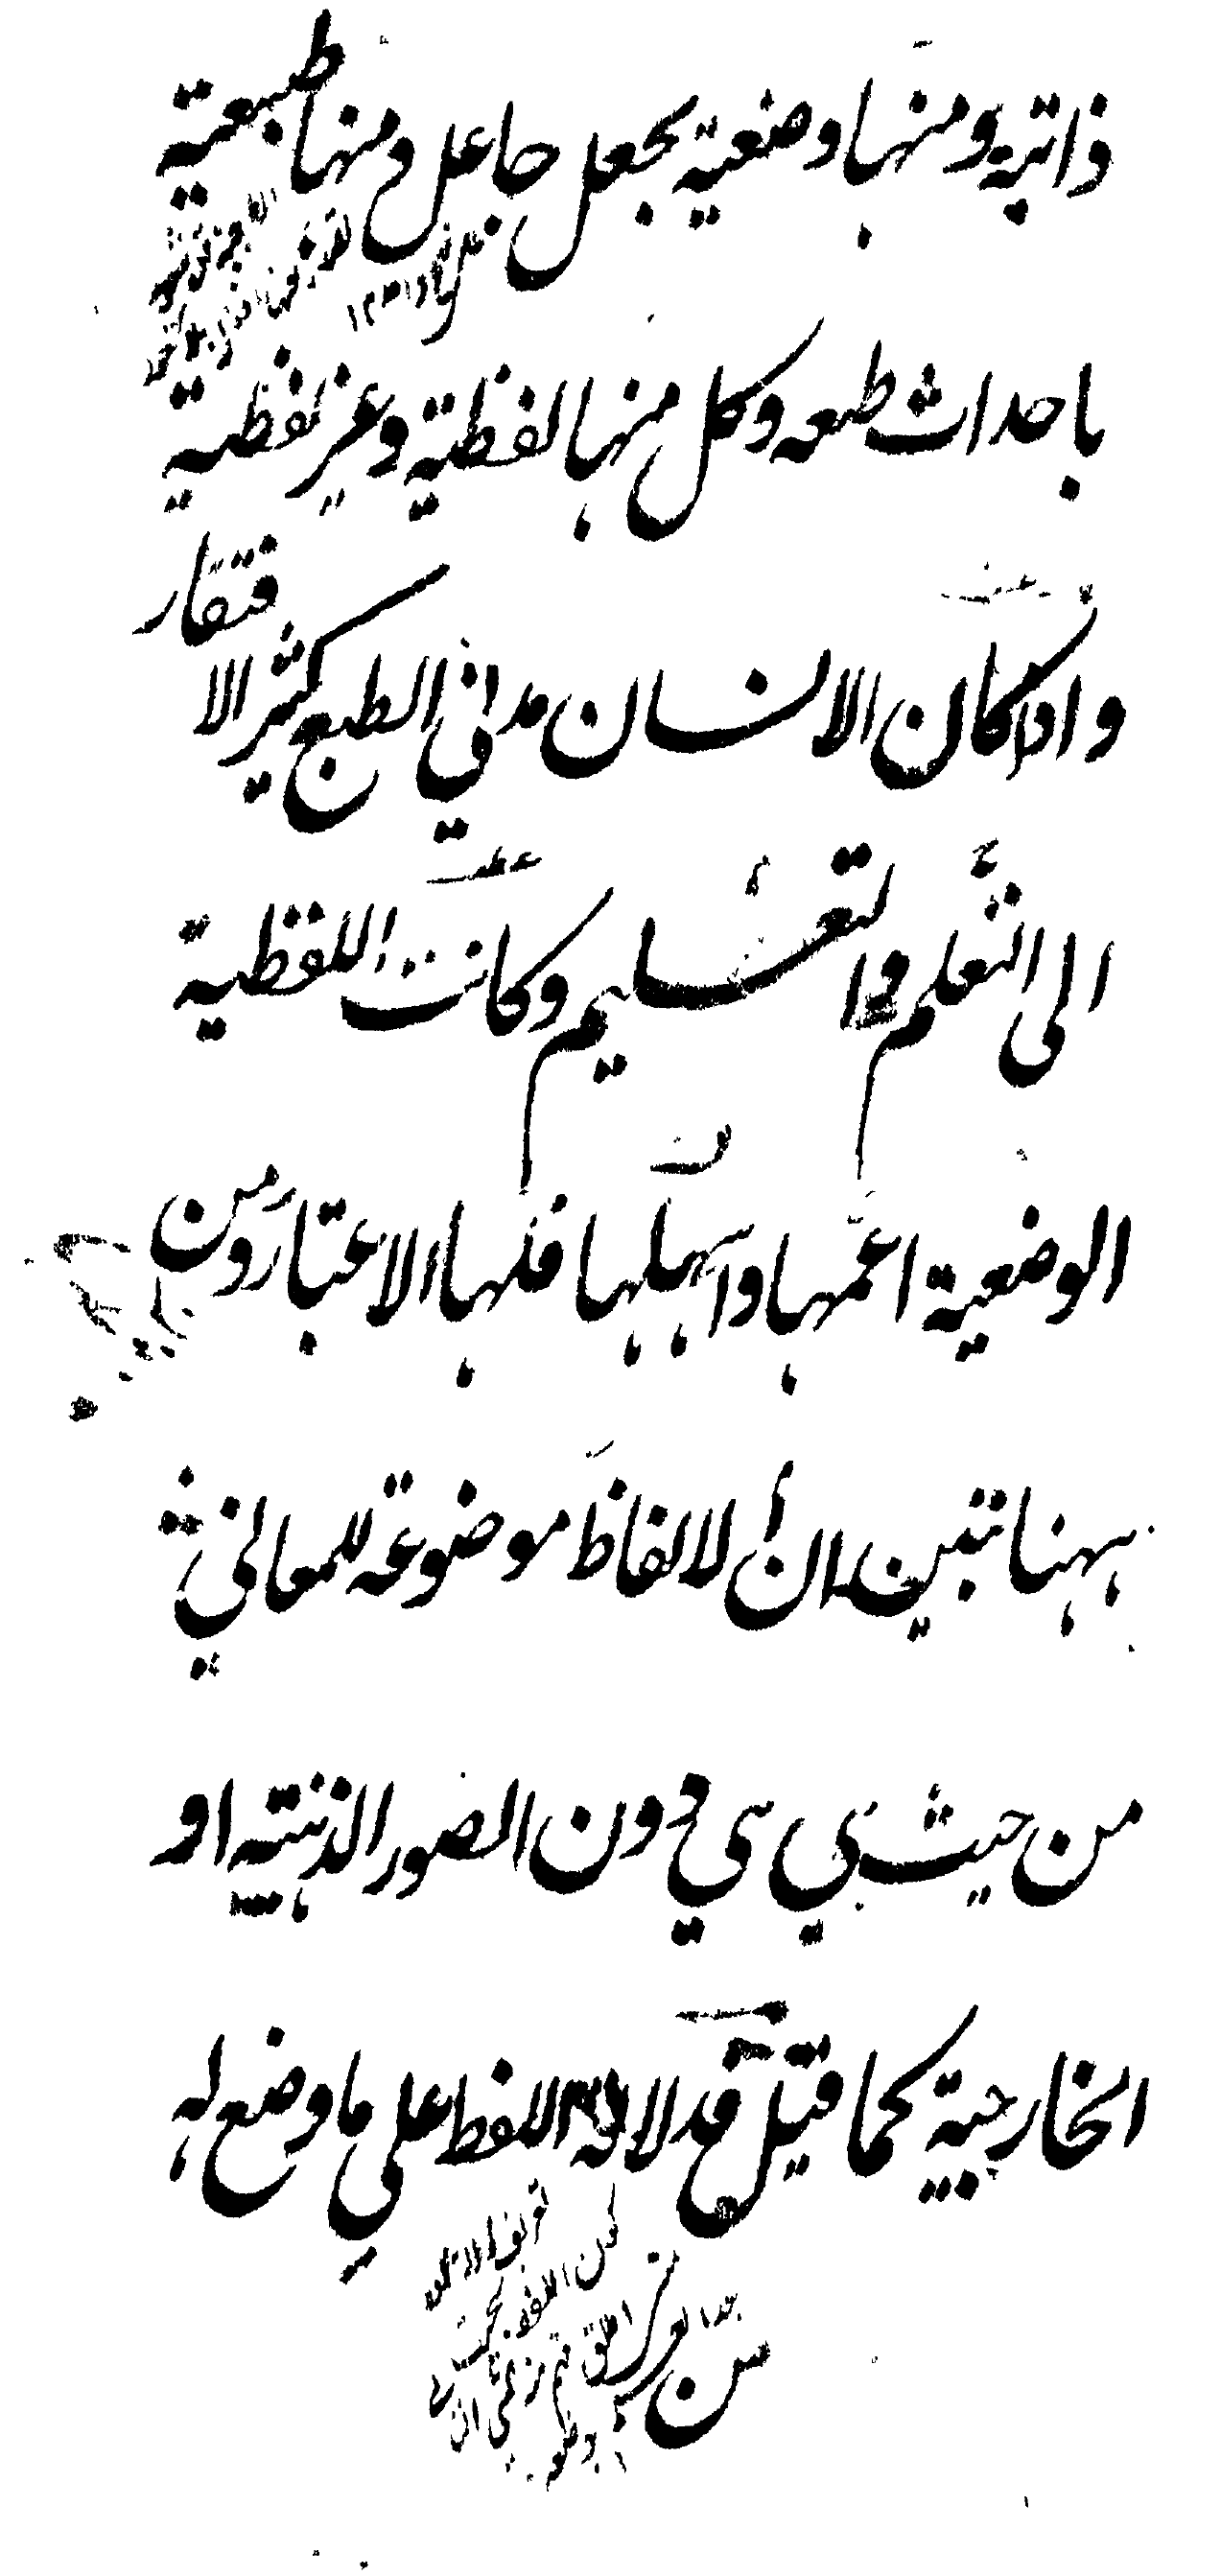 ذاتية ومنها وضعية بجعل جاعل ومنها طبعية
باحداث طبعه وكل منها لفظية وغير لفظية
واذا كان الانسان مدني الطبع كثير الافتقار
الى التعلم والتعليم وكانت اللفظية
الوضعية اعمها واسهلها فلها الاعتبار ومن
ههنا تبين ان الالفاظ موضوعة للمعاني
من حيث هي هي دون الصور الذهنية او
الخارجية كما قيل فدلالة اللفظ على ما وضع له
من